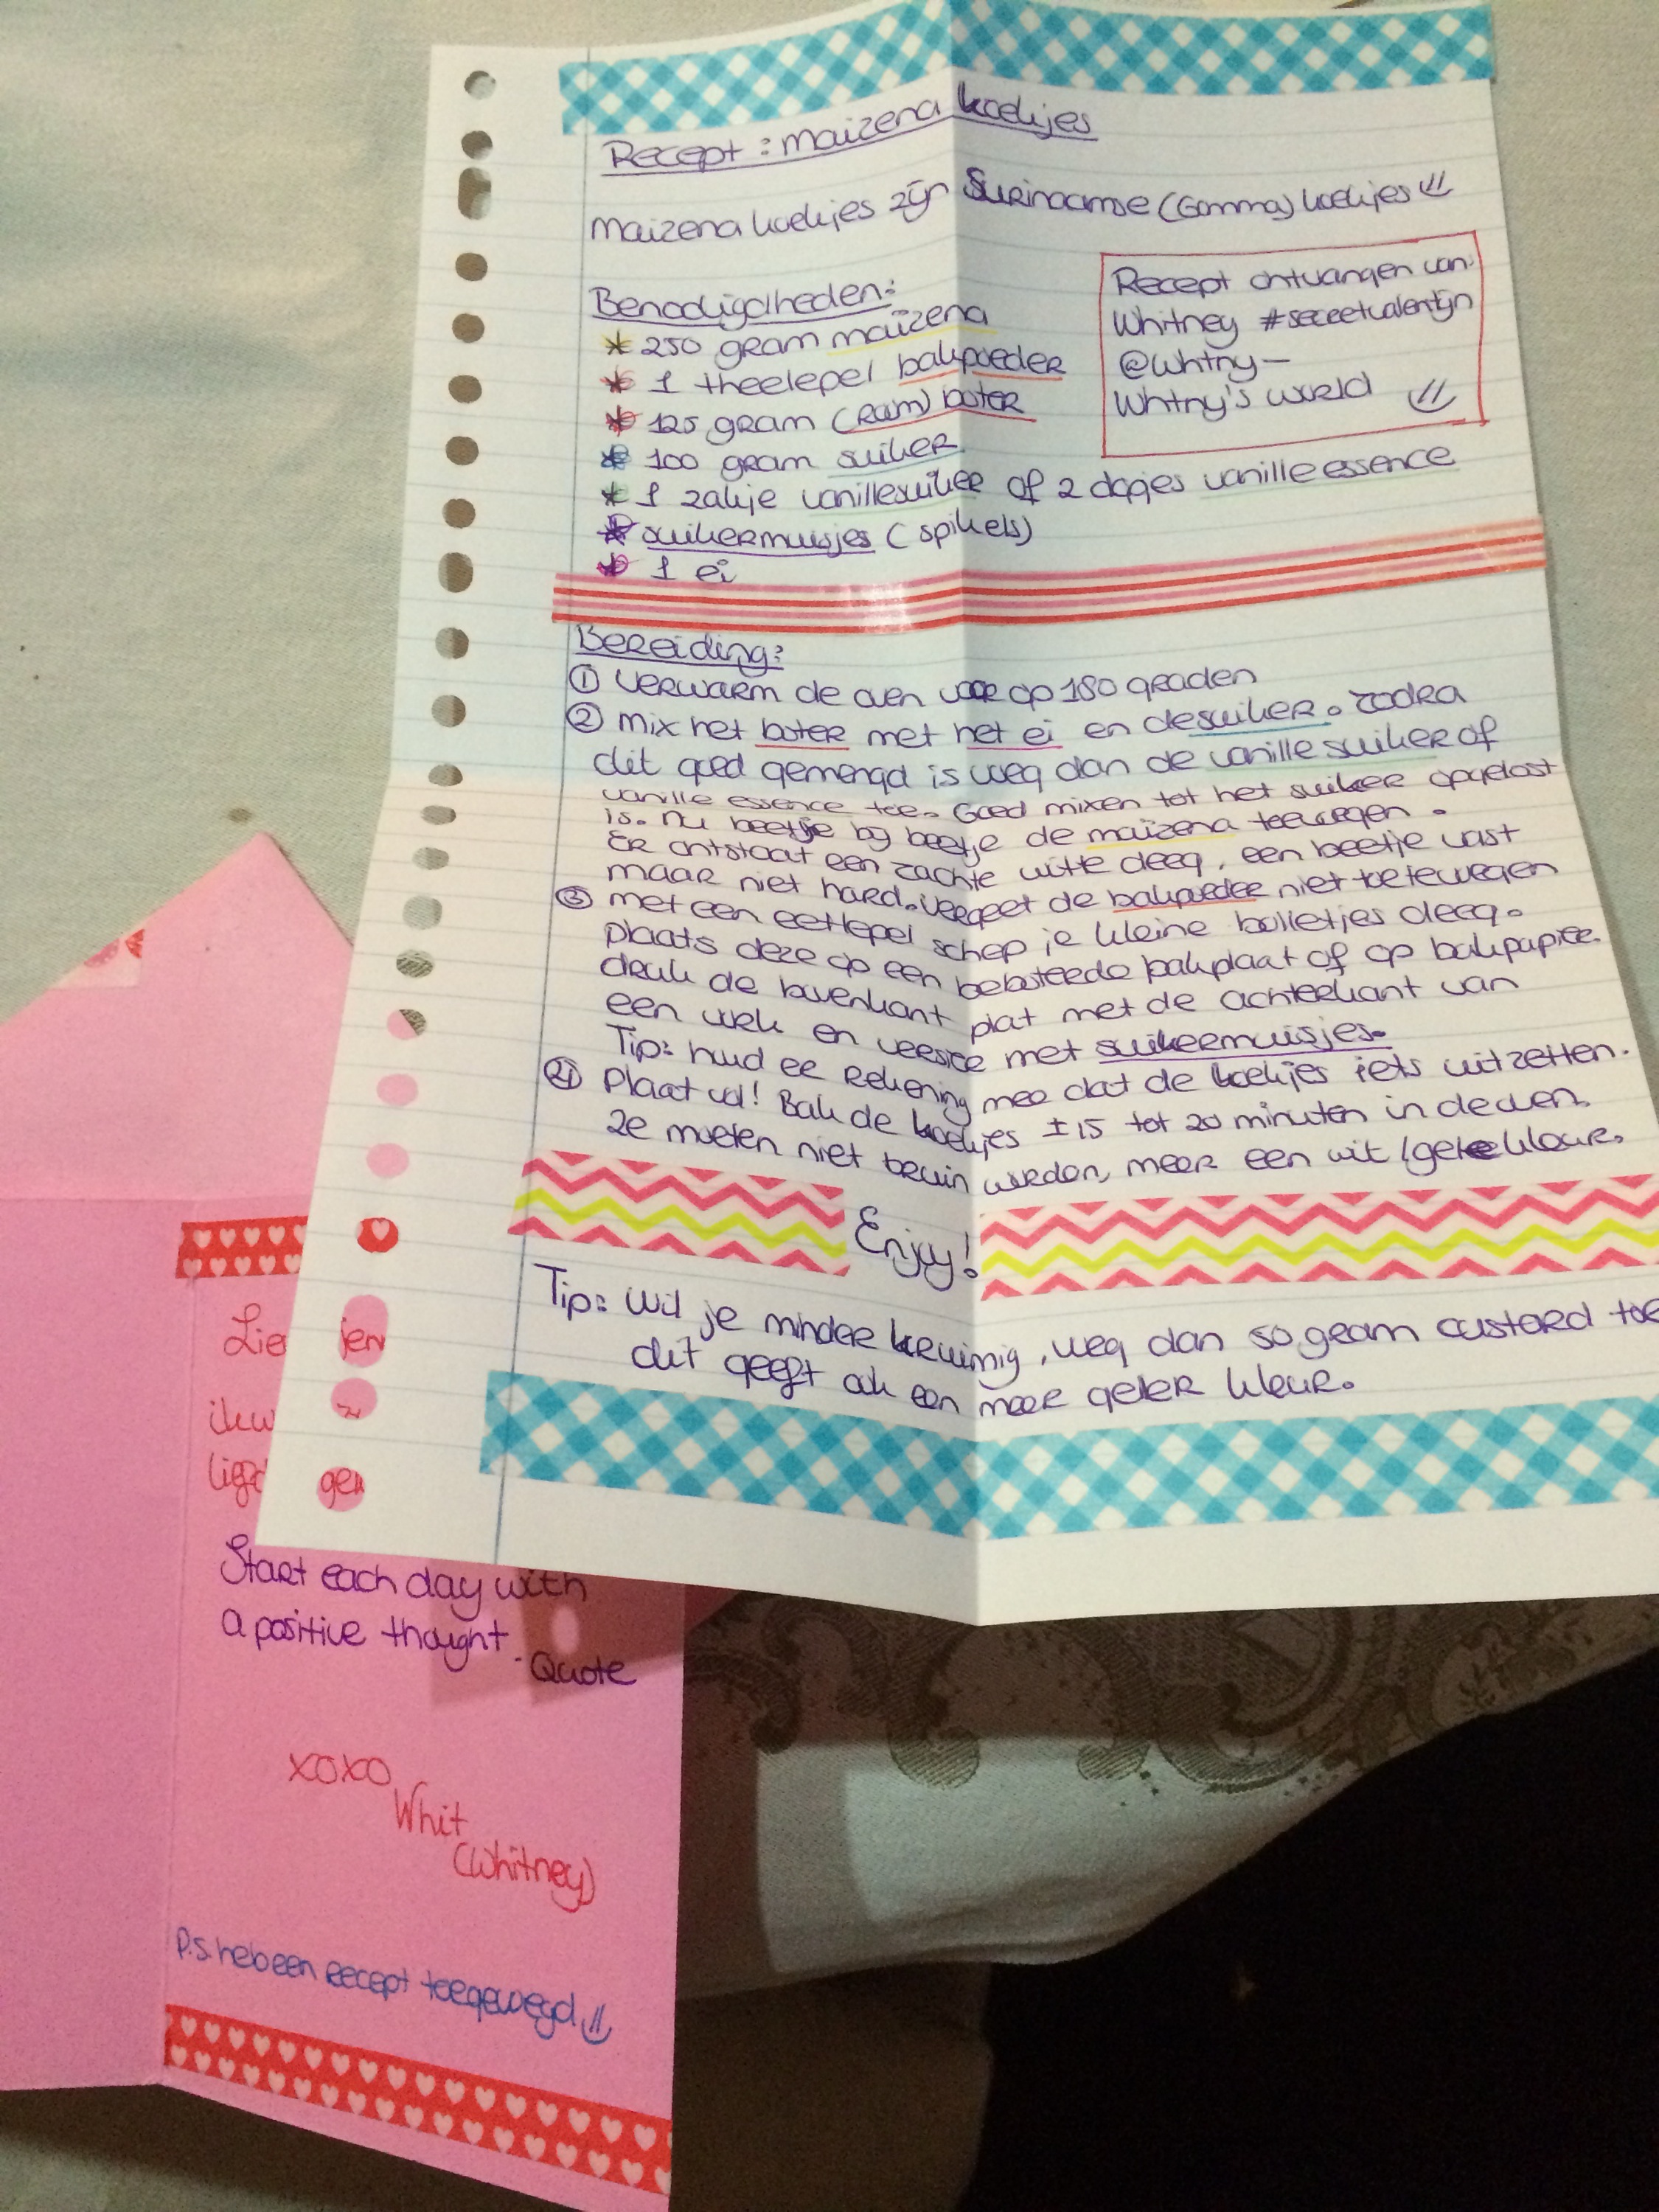 Recept : maïzena koekjes
maïzena koekjes zijn Surinaamse (Gomma) koekjes
Benodigdheden:
* 250 gram maïzena
* 1 theelepel bakpoeder
* 125 gram (Room) boter
* 100 gram suiker
* 1 zakje vanillesuiker of 2 dopjes vanille essence
* suikermuisjes (spikels)
* 1 ei
Recept ontvangen van:
Whitney #secretvalentijn
@whtny—
Whtny's world
Bereiding:
① verwarm de oven voor op 180 graden
② mix het boter met het ei en de suiker. zodra
dit goed gemengd is voeg dan de vanille suiker of
vanille essence toe. Goed mixen tot het suiker opgelost
is. nu beetje bij beetje de maïzena toevoegen.
Er ontstaat een zachte witte deeg, een beetje vast
maar niet hard. vergeet de bakpoeder niet toe te voegen
③ met een eetlepel schep je kleine bolletjes deeg.
plaats deze op een beboterde bakplaat of op bakpapier.
druk de bovenkant plat met de achterkant van
een vork en versier met suikermuisjes.
Tip: houd er rekening mee dat de koekjes iets uitzetten.
④ Plaat vol! Bak de koekjes ± 15 tot 20 minuten in de oven.
Ze moeten niet bruin worden, meer een wit/gele kleur.
Enjoy!
Tip: Wil je minder kruimig, voeg dan 50 gram custard toe
dit geeft ook een meer geler kleur.
Lie jen
ikw
gen
Start each day with
a positive thought
- Quote
xoxo
Whit
(Whitney)
P.S. heb een recept toegevoegd